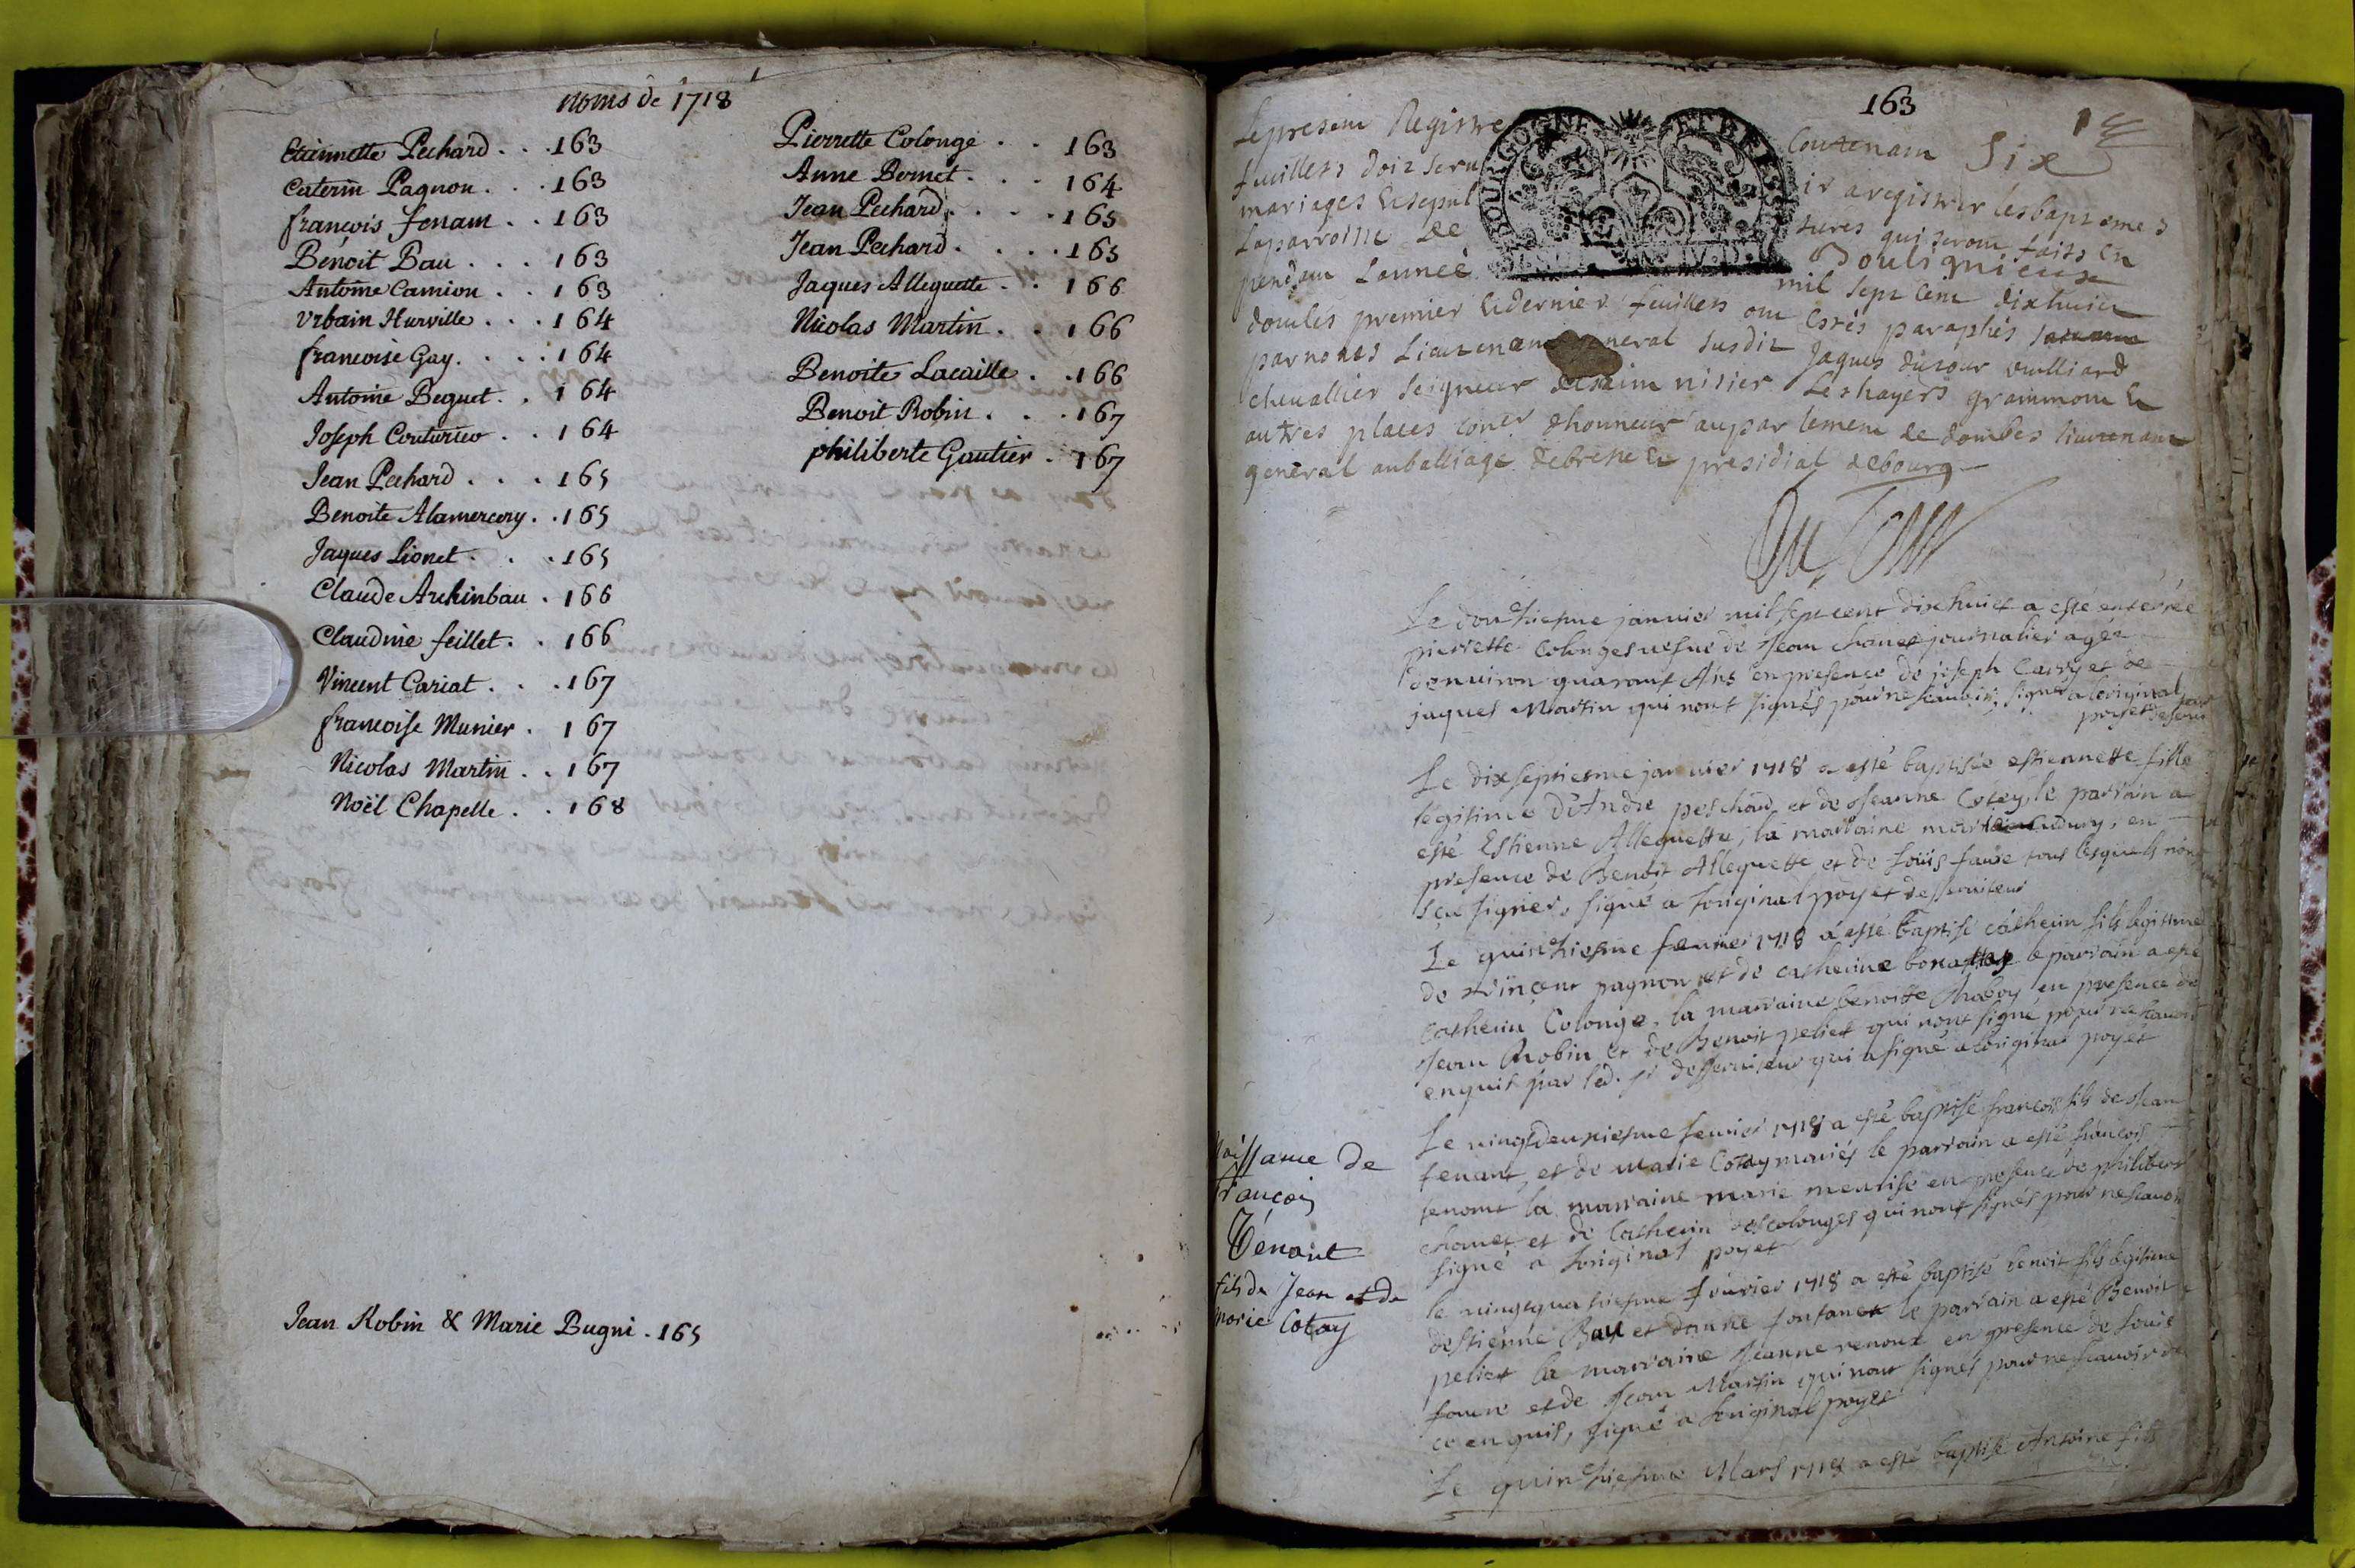 noms de 1718
Etiennette Pechard . . . 163
Caterin Pagnon . . . 163
françois fenam . . 163
Benoit Bau . . . 163
Antoine Camion . . 163
Vrbain Hurville . . . 164
francoise Gay . . . . 164
Antoine Beguet . . 164
Joseph Couturier . . 164
Jean Pechard . . . 165
Benoite Alamercery . . 165
Jaques Lionet . . . 165
Claude Archinbau . 166
Claudine feillet . . 166
Vincent Cariat . . . 167
francoise Munier . 167
Nicolas Martin . . 167
Noël Chapelle . . 168
Pierrette Colonge . . 163
Anne Bernet . . . 164
Jean Pechard . . . . 165
Jean Pechard . . . . 165
Jaques Alleguette . . 166
Nicolas Martin . . 166
Benoite Lacaille . . 166
Benoit Robin . . . 167
philiberte Gautier . 167
Jean Robin & Marie Bugni . 165
163
Le present Registre Contenam Six
fueillets doit seruir a registrer les baptemes
mariages & sepultures qui seront faits en
La parroisse de Boulignieux
pendant Lannee mil sept cent dixhuict
dont les premier & dernier feuillets ont estés paraphés
par nous Lieutenant general susdit Jaques dutour vuilliard
cheuallier seigneur de saint nisier Les hayers grammont &
autres places coner dhonneur au parlement de dombes lieutenant
general au balliage de bresse & presidial de bourg
Du Tour
Le douxhiesme januier mil sept cent dixhuict a esté enterrée
pierrette Colonges uefue de Jean chanet journalier agée
denuiron quarant Ans en presence de joseph Carry et de
jaques Martin qui nont signés pour ne scauoir, signé a loriginal
poyet
Le dixseptiesme januier 1718 a esté baptisée estiennette fille
legitime d'Andre peschard et de Jeanne Cotey, le parrain a
esté Estienne Alleguette, la marraine en
presence de Benoit Alleguette et de Loüis faure tous lesquels nont
sçu signer, signé a loriginal poyet desseruiteur
Le quinxhiesme feurier 1718 a esté baptisé catherin fils legitime
de vincent pagnon et de catherine le parrain a esté
Catherin Colonge, la marraine benoitte en presence de
Jean Robin et de Benoit peliet qui nont signé pour ne scauoir
enquis par led. sr desseruiteur qui a signé a loriginal poyet
Le vingtdeuxiesme feurier 1718 a esté baptisé françois fils de Jean
tenant, et de Marie Cotay mariés le parrain a esté françois
tenant la marraine marie en presence de philibert
chanet et de Catherin descolonges qui nont signés pour ne scauoir
signé a loriginal poyet
Naissance de
François
Ténant
fils de Jean et de
Marie Cotay
le vingtquatriesme feurier 1718 a esté baptisé benoit fils legitime
destienne Bau et danne fontanet le parrain a esté Benoit
peliet la marraine Jeanne renoux en presence de Louis
faure et de Jean Martin qui nont signés pour ne scauoir de
ce enquis, signé a loriginal poyet
Le quinxhiesme Mars 1718 a esté baptisé Antoine fils